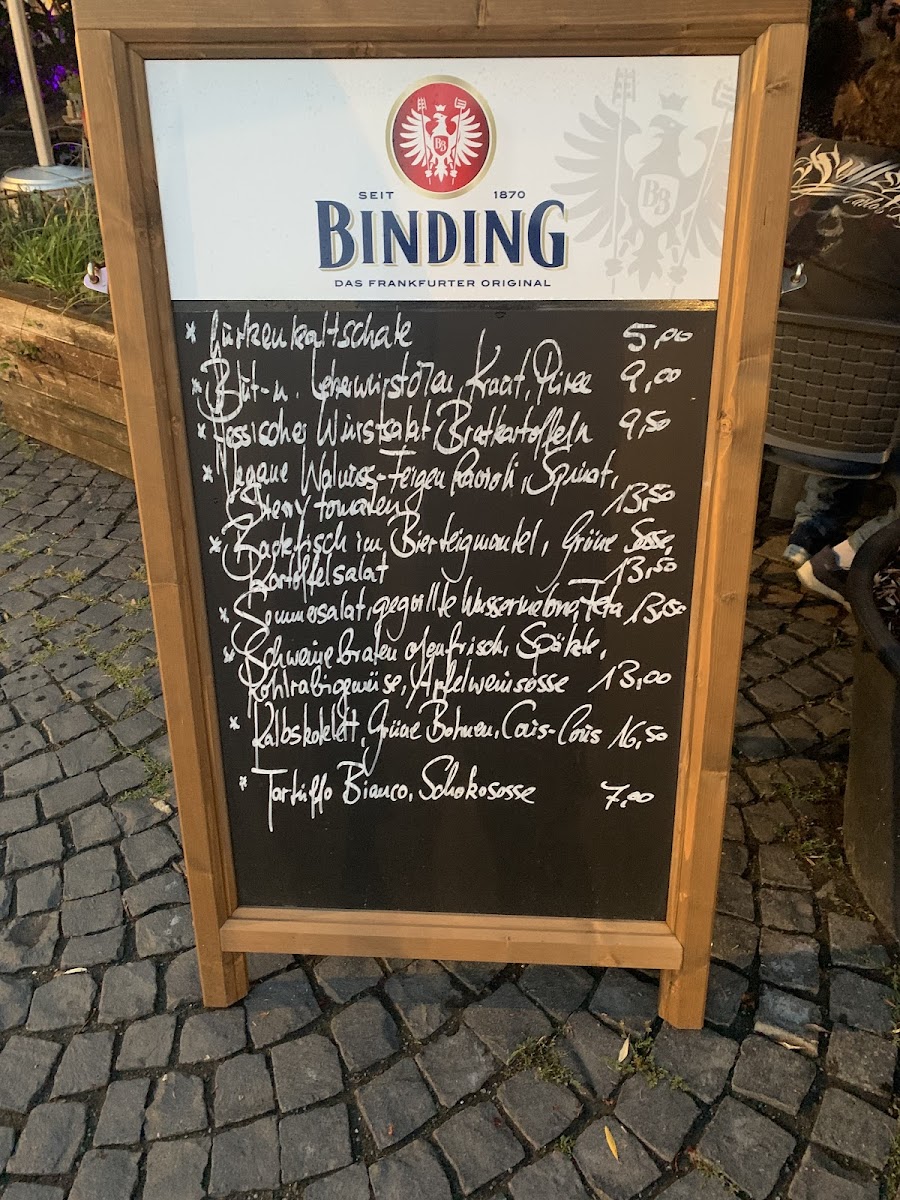 SEIT 1870
BINDING
DAS FRANKFURTER ORIGINAL
* Gurkenkaltschale 5,00
* Blut- u. Leberwürstchen, Kraut, Püree 9,00
* Hessischer Wurstsalat, Bratkartoffeln 9,50
* Vegane Walnuss-Feigen Ravioli, Spinat,
Cherrytomaten 13,50
* Backfisch im Bierteigmantel, Grüne Sosse,
Kartoffelsalat 13,50
* Sommersalat, gegrillte Wassermelone, Feta 13,50
* Schweinebraten ofenfrisch, Spätzle,
Kohlrabigemüse, Apfelweinsosse 13,00
* Kalbskotelett, Grüne Bohnen, Cous-Cous 16,50
* Tartuffo Bianco, Schokososse 7,00